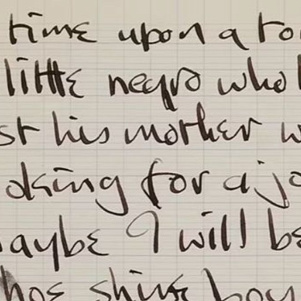 time upon a to
little negro who l
st his mother w
oking for a jo
aybe I will be
hoe shine boy